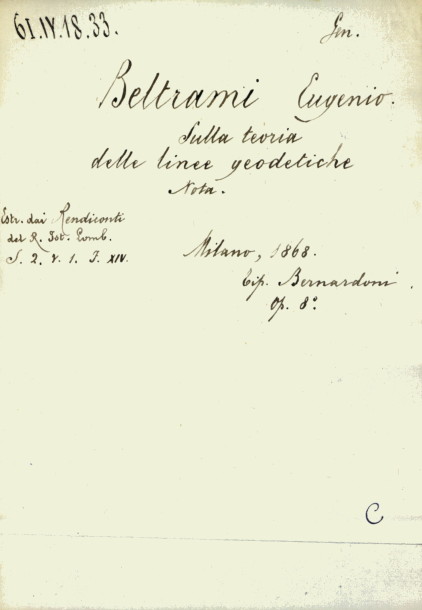 61.IV.18.33.
Gen.
Beltrami Eugenio.
Sulla teoria
delle linee geodetiche
Nota.
Estr. dai Rendiconti
del R. Ist. Lomb.
S. 2. v. 1. F. XIV.
Milano, 1868.
Tip. Bernardoni.
Op. 8º.
C